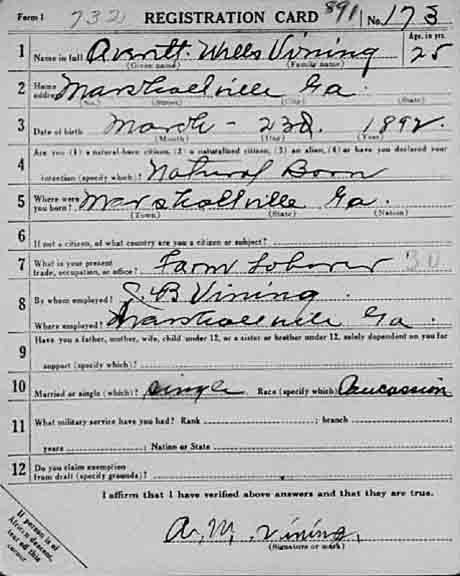 Form 1 732 REGISTRATION CARD 891 No. 173
1 Name in full Averett Wells Vining Age, in yrs. 25
(Given name) (Family name)
2 Home address Marshallville Ga.
(No.) (Street) (City) (State)
3 Date of birth March - 23d. 1892
(Month) (Day) (Year)
4 Are you (1) a natural-born citizen, (2) a naturalized citizen, (3) an alien, (4) or have you declared your
intention (specify which)? Natural Born
5 Where were you born? Marshallville Ga.
(Town) (State) (Nation)
6 If not a citizen, of what country are you a citizen or subject?
7 What is your present trade, occupation, or office? Farm Laborer 30
8 By whom employed? S. B Vining.
Where employed? Marshallville Ga
9 Have you a father, mother, wife, child under 12, or a sister or brother under 12, solely dependent on you for
support (specify which)?
10 Married or single (which)? single Race (specify which)? Caucassion
11 What military service have you had? Rank ; branch ;
years ; Nation or State
12 Do you claim exemption from draft (specify grounds)?
I affirm that I have verified above answers and that they are true.
A. W. Vining.
(Signature or mark)
If person is of
African descent,
tear off this
corner